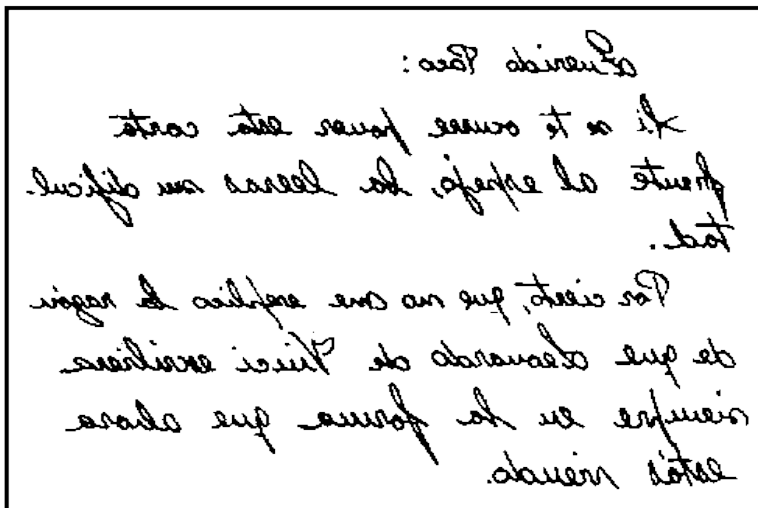 Querido Paco:
Si se te ocurre poner esta carta
frente al espejo, la leeras sin dificul-
tad.
Por cierto, que no me explico la razón
de que Leonardo de Vinci escribiera
siempre en la forma que ahora
estás viendo.